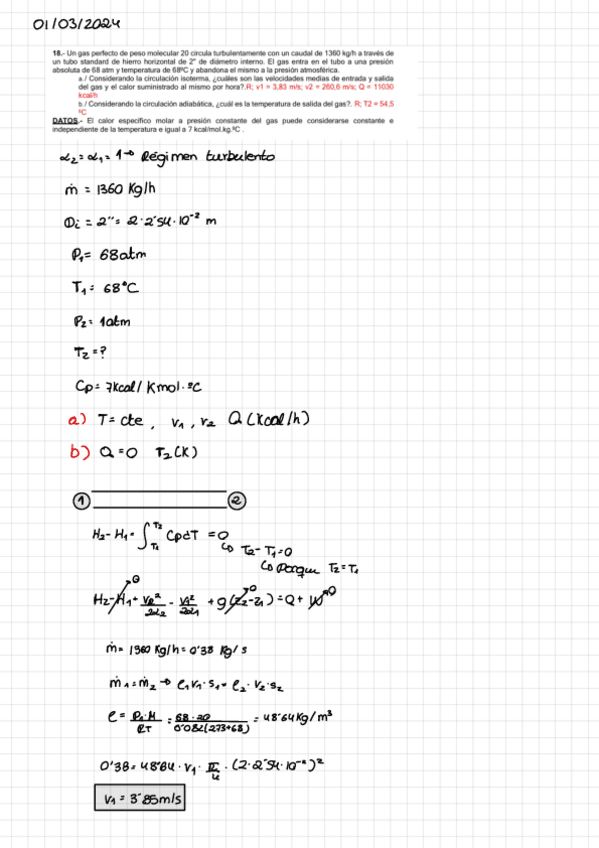 01/03/2024
18.- Un gas perfecto de peso molecular 20 circula turbulentamente con un caudal de 1360 kg/h a través de
un tubo standard de hierro horizontal de 2" de diámetro interno. El gas entra en el tubo a una presión
absoluta de 68 atm y temperatura de 68ºC y abandona el mismo a la presión atmosférica.
a./ Considerando la circulación isoterma, ¿cuáles son las velocidades medias de entrada y salida
del gas y el calor suministrado al mismo por hora?.R; v1 = 3,83 m/s; v2 = 260,6 m/s; Q = 11030
kcal/h
b./ Considerando la circulación adiabática, ¿cuál es la temperatura de salida del gas?. R; T2 = 54,5
ºC
DATOS.- El calor específico molar a presión constante del gas puede considerarse constante e
independiente de la temperatura e igual a 7 kcal/mol.kg.ºC .
α₂ = α₁ = 1 → Régimen turbulento
ṁ = 1360 Kg/h
Di = 2" = 2·2'54·10⁻² m
P₁ = 68 atm
T₁ = 68ºC
P₂ = 1 atm
T₂ = ?
Cp = 7 kcal / Kmol·ºC
a) T = cte , v₁ , v₂ Q (Kcal/h)
b) Q = 0 T₂ (K)
1 2
H₂ - H₁ = ∫ T₁ T₂ Cp dT = 0
↳ T₂ - T₁ = 0
↳ Porque T₂ = T₁
H₂ - H₁ + v₂²/2α₂ - v₁²/2α₁ + g (z₂ - z₁) = Q + W
ṁ = 1360 Kg/h = 0'38 Kg/s
ṁ₁ = ṁ₂ → ρ₁ v₁ · s₁ = ρ₂ · v₂ · s₂
ρ = P₁·M / RT = 68·20 / 0'082(273+68) = 48'64 Kg/m³
0'38 = 48'64 · v₁ · π/4 · (2·2'54·10⁻²)²
v₁ = 3'85 m/s